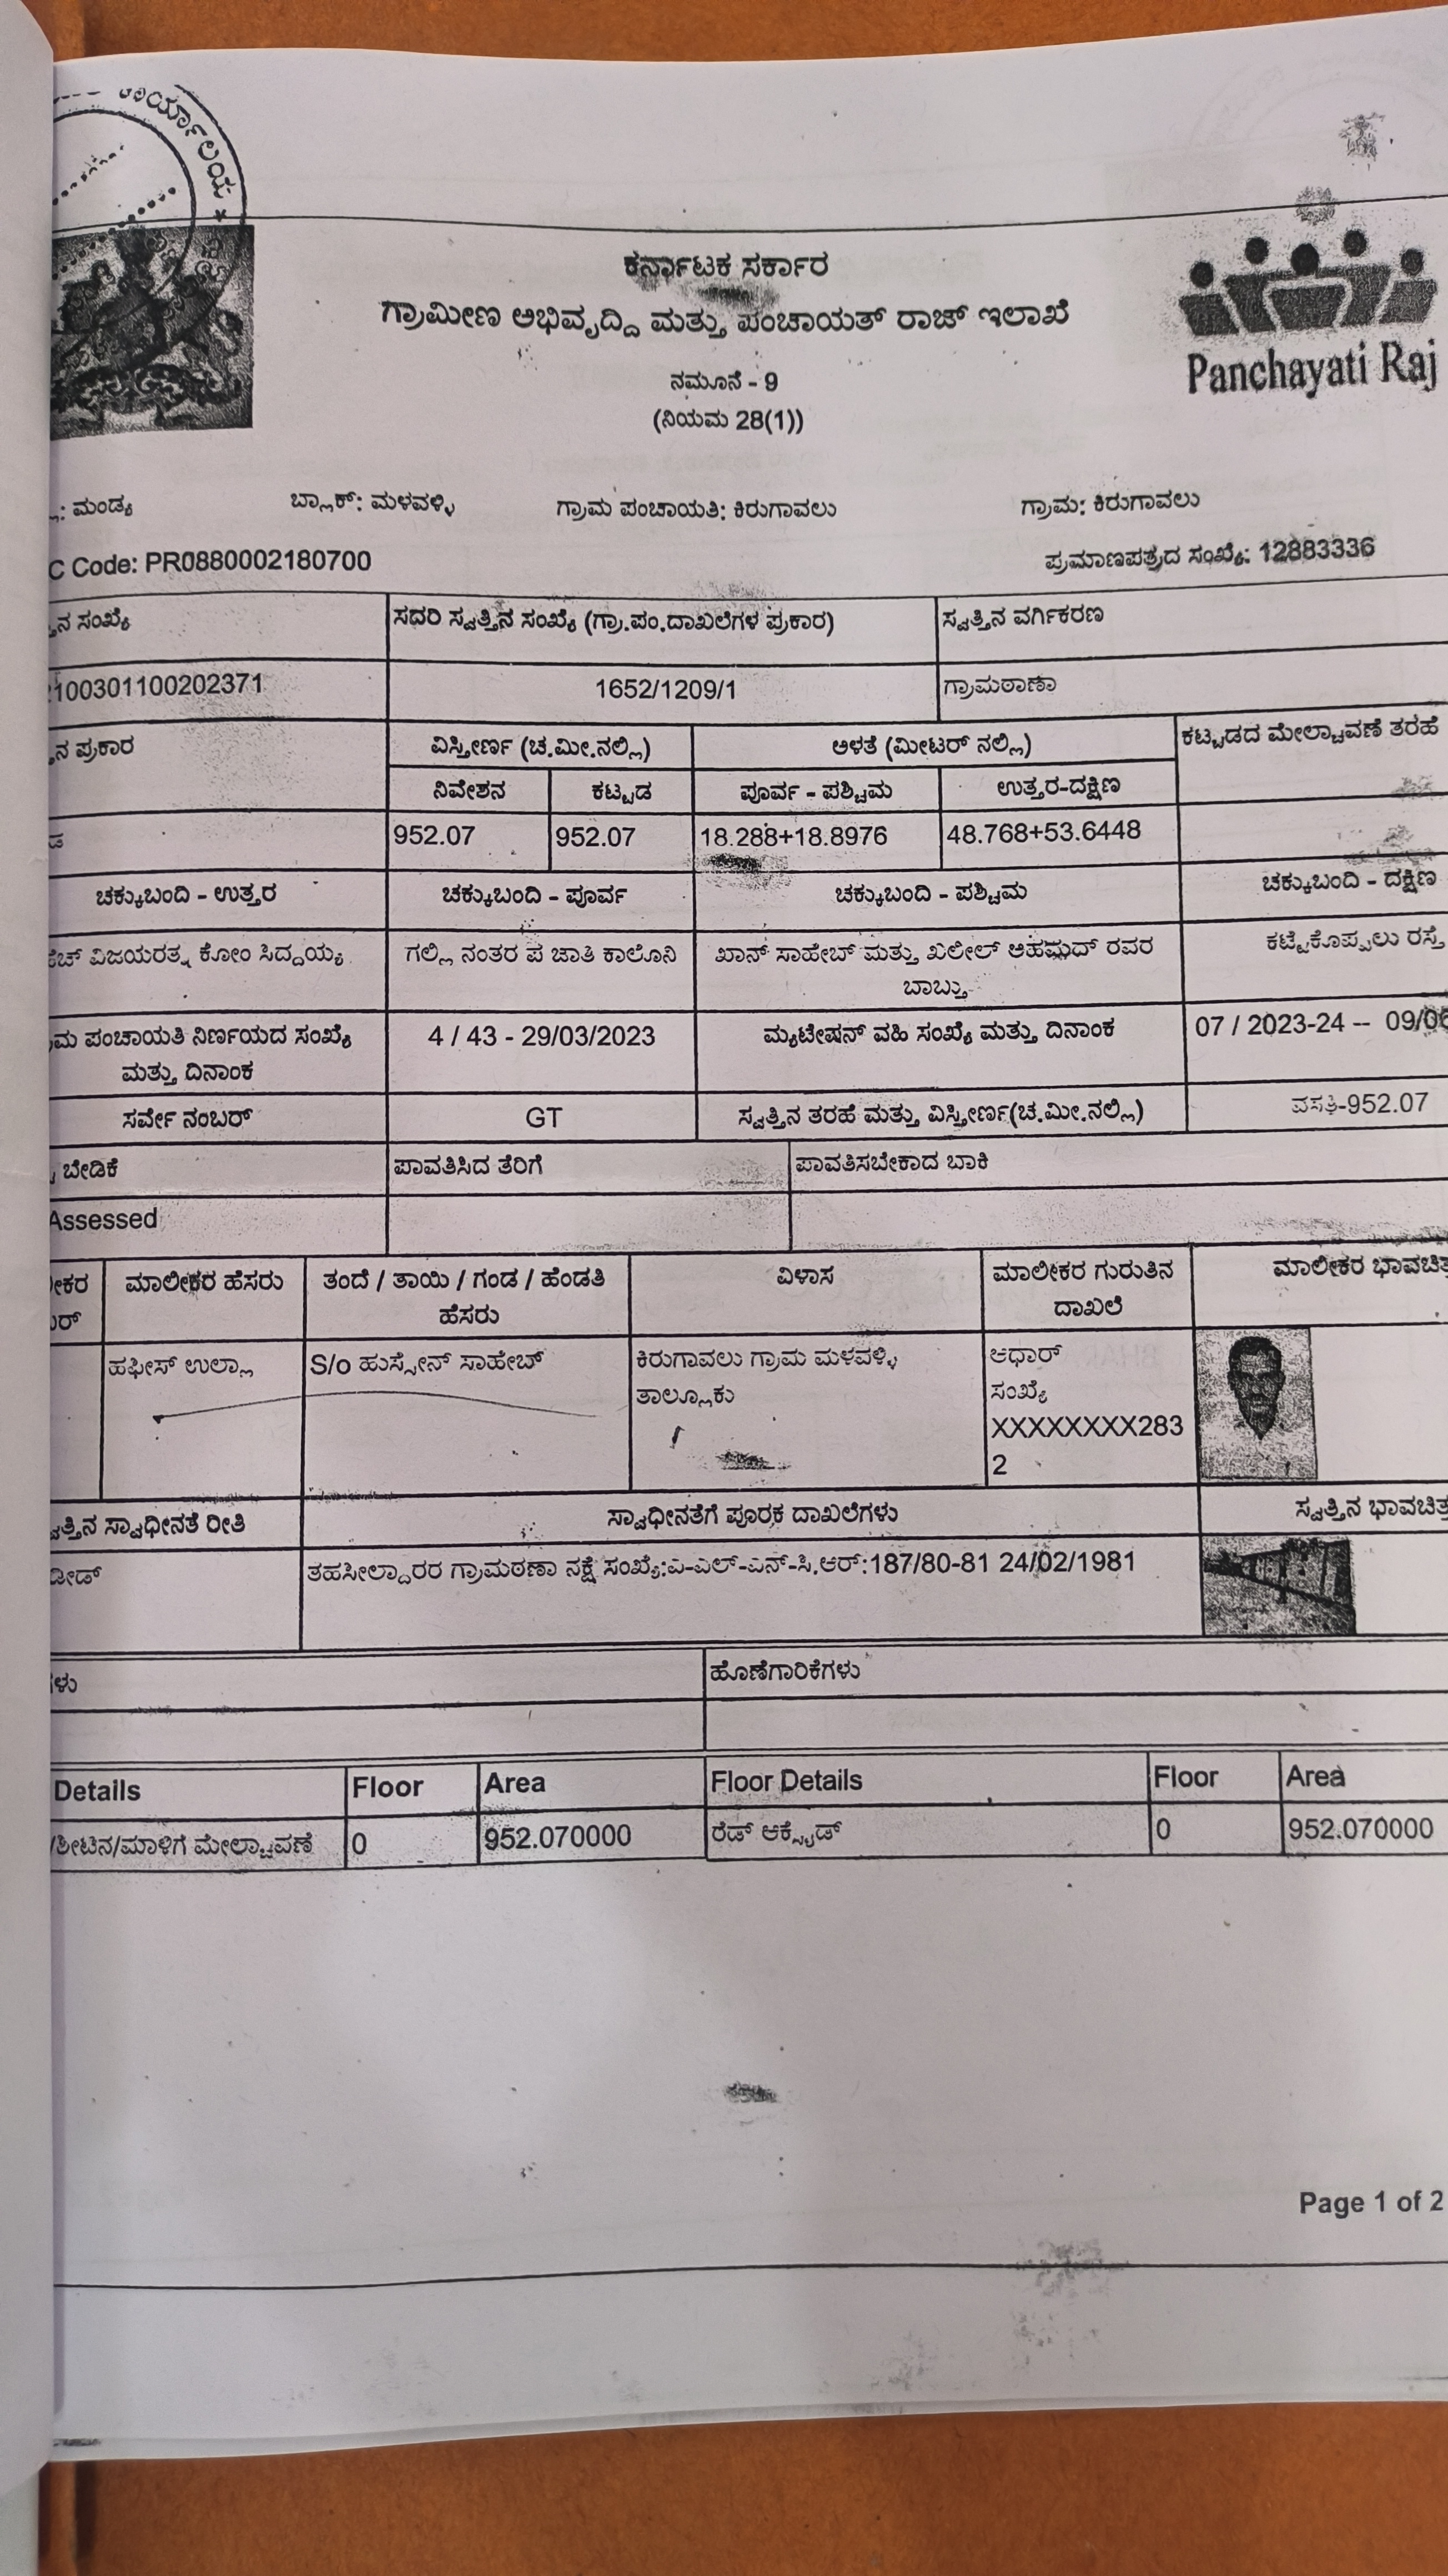 ಕಾರ್ಯಾಲಯ *
ಕರ್ನಾಟಕ ಸರ್ಕಾರ
ಗ್ರಾಮೀಣ ಅಭಿವೃದ್ದಿ ಮತ್ತು ಪಂಚಾಯತ್ ರಾಜ್ ಇಲಾಖೆ
Panchayati Raj
ನಮೂನೆ - 9
(ನಿಯಮ 28(1))
: ಮಂಡ್ಯ ಬ್ಲಾಕ್: ಮಳವಳ್ಳಿ ಗ್ರಾಮ ಪಂಚಾಯತಿ: ಕಿರುಗಾವಲು ಗ್ರಾಮ: ಕಿರುಗಾವಲು
C Code: PR0880002180700 ಪ್ರಮಾಣಪತ್ರದ ಸಂಖ್ಯೆ: 12883336
ನ ಸಂಖ್ಯೆ ಸದರಿ ಸ್ವತ್ತಿನ ಸಂಖ್ಯೆ (ಗ್ರಾ.ಪಂ.ದಾಖಲೆಗಳ ಪ್ರಕಾರ) ಸ್ವತ್ತಿನ ವರ್ಗಿಕರಣ
100301100202371 1652/1209/1 ಗ್ರಾಮಠಾಣಾ
ನ ಪ್ರಕಾರ ವಿಸ್ತೀರ್ಣ (ಚ.ಮೀ.ನಲ್ಲಿ) ಅಳತೆ (ಮೀಟರ್ ನಲ್ಲಿ) ಕಟ್ಟಡದ ಮೇಲ್ಚಾವಣೆ ತರಹೆ
ನಿವೇಶನ ಕಟ್ಟಡ ಪೂರ್ವ - ಪಶ್ಚಿಮ ಉತ್ತರ-ದಕ್ಷಿಣ
ಡ 952.07 952.07 18.288+18.8976 48.768+53.6448
ಚಕ್ಕುಬಂದಿ - ಉತ್ತರ ಚಕ್ಕುಬಂದಿ - ಪೂರ್ವ ಚಕ್ಕುಬಂದಿ - ಪಶ್ಚಿಮ ಚಕ್ಕುಬಂದಿ - ದಕ್ಷಿಣ
ಹೆಚ್ ವಿಜಯರತ್ನ ಕೋಂ ಸಿದ್ದಯ್ಯ ಗಲ್ಲಿ ನಂತರ ಪ ಜಾತಿ ಕಾಲೊನಿ ಖಾನ್ ಸಾಹೇಬ್ ಮತ್ತು ಖಲೀಲ್ ಅಹಮ್ಮದ್ ರವರ ಕಟ್ಟೆಕೊಪ್ಪಲು ರಸ್ತೆ
ಬಾಬ್ತು
ಮ ಪಂಚಾಯತಿ ನಿರ್ಣಯದ ಸಂಖ್ಯೆ 4 / 43 - 29/03/2023 ಮ್ಯುಟೇಷನ್ ವಹಿ ಸಂಖ್ಯೆ ಮತ್ತು ದಿನಾಂಕ 07 / 2023-24 -- 09/06
ಮತ್ತು ದಿನಾಂಕ
ಸರ್ವೇ ನಂಬರ್ GT ಸ್ವತ್ತಿನ ತರಹೆ ಮತ್ತು ವಿಸ್ತೀರ್ಣ(ಚ.ಮೀ.ನಲ್ಲಿ) ವಸತಿ-952.07
ಬೇಡಿಕೆ ಪಾವತಿಸಿದ ತೆರಿಗೆ ಪಾವತಿಸಬೇಕಾದ ಬಾಕಿ
Assessed
ೀಕರ ಮಾಲೀಕರ ಹೆಸರು ತಂದೆ / ತಾಯಿ / ಗಂಡ / ಹೆಂಡತಿ ವಿಳಾಸ ಮಾಲೀಕರ ಗುರುತಿನ ಮಾಲೀಕರ ಭಾವಚಿತ್ರ
ಹೆಸರು ದಾಖಲೆ
ಹಫೀಸ್ ಉಲ್ಲಾ S/o ಹುಸ್ಸೇನ್ ಸಾಹೇಬ್ ಕಿರುಗಾವಲು ಗ್ರಾಮ ಮಳವಳ್ಳಿ ಆಧಾರ್
ತಾಲ್ಲೂಕು ಸಂಖ್ಯೆ
XXXXXXXX283
2
ವತ್ತಿನ ಸ್ವಾಧೀನತೆ ರೀತಿ ಸ್ವಾಧೀನತೆಗೆ ಪೂರಕ ದಾಖಲೆಗಳು ಸ್ವತ್ತಿನ ಭಾವಚಿತ್ರ
ಡೀಡ್ ತಹಸೀಲ್ದಾರರ ಗ್ರಾಮಠಣಾ ನಕ್ಷೆ ಸಂಖ್ಯೆ:ಎ-ಎಲ್-ಎನ್-ಸಿ.ಆರ್:187/80-81 24/02/1981
ಗಳು ಹೊಣೆಗಾರಿಕೆಗಳು
Details Floor Area Floor Details Floor Area
/ಶೀಟಿನ/ಮಾಳಿಗೆ ಮೇಲ್ಚಾವಣೆ 0 952.070000 ರೆಡ್ ಆಕ್ಸೈಡ್ 0 952.070000
Page 1 of 2